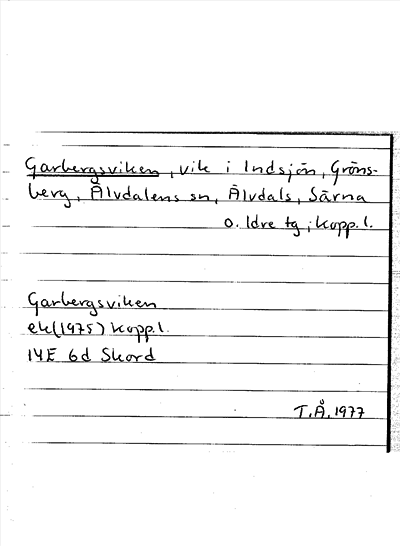 Garbergsviken, vik i Indsjön, Gröns-
berg, Älvdalens sn, Älvdals, Särna
o. Idre tg; Kopp.l.
Garbergsviken
ek(1975) Kopp.l.
14E 6d Skord
T.Å. 1977